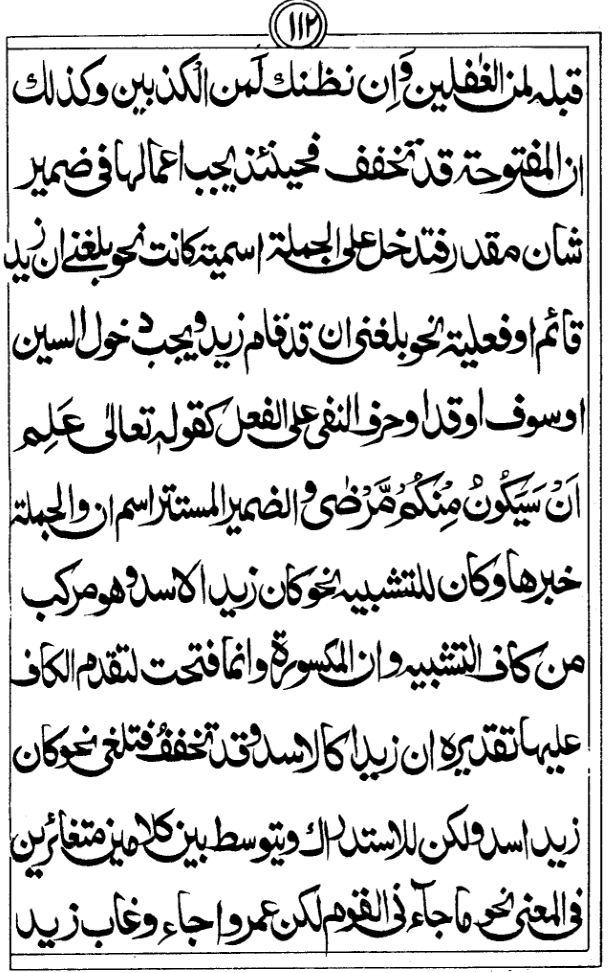 ١١٢
قبله لمن الغٰفلين وَإن نظنك لَمن الْكٰذبين وكذلك
ان المفتوحة قد تخفف فحينئذ يجب اعمالها فى ضمير
شان مقدر فتدخل على الجملة اسمية كانت نحو بلغنے ان زيد
قائم او فعلية نحو بلغنى ان قد قام زيد ويجب دخول السين
او سوف او قد او حرف النفى على الفعل كقوله تعالى عَلِم
اَنْ سَيَكُونُ مِنْكُمْ مَّرْضٰى والضمير المستتر اسم ان والجملة
خبرها وكان للتشبيه نحو كان زيد الاسد وهو مركب
من كاف التشبيه وان المكسورة وانما فتحت لتقدم الكاف
عليها تقديره ان زيدا كالاسد وقد تخفف فتلغى نحو كان
زيد اسد ولكن للاستدراك ويتوسط بين كلامين متغائرين
فى المعنى نحو ما جآءنى القوم لكن عمروا جاء وغاب زيد